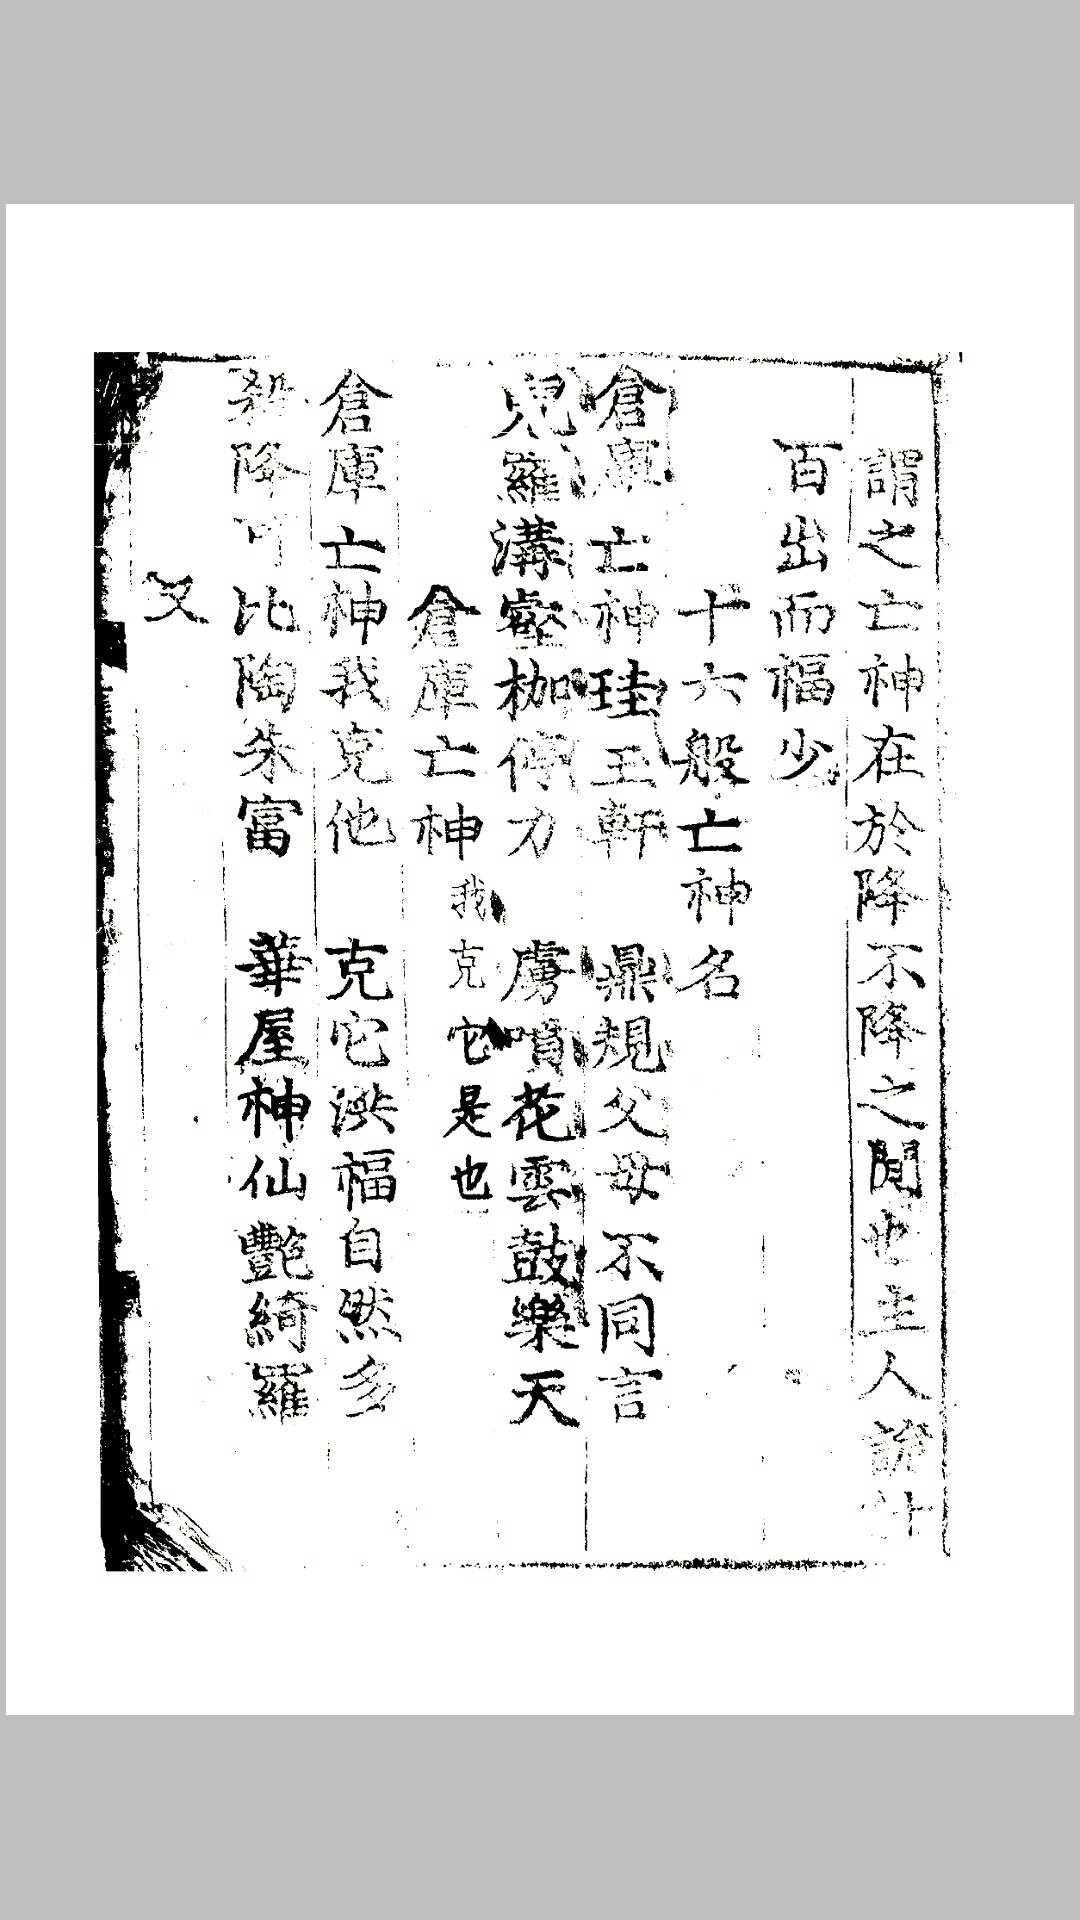 謂之亡神在於降不降之間也主人詭計
百出而福少
十六般亡神名
倉庫亡神珪玉軒　鼎規父母不同言
兒羅溝壑枷停力　虜噴花雲鼓樂天
倉庫亡神我克它是也
倉庫亡神我克他　克它洪福自然多
殺降可比陶朱富　華屋神仙艷綺羅
又